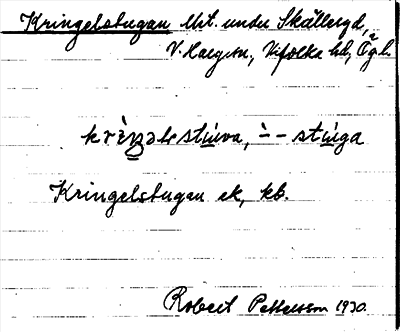 Kringelstugan lht. under Skällergd,
V. Harg sn., Vifolka hd, Ögl.
krìŋəlstuwa, `– – stuga
Kringelstugan ek, kb.
Robert Pettersson 1930.